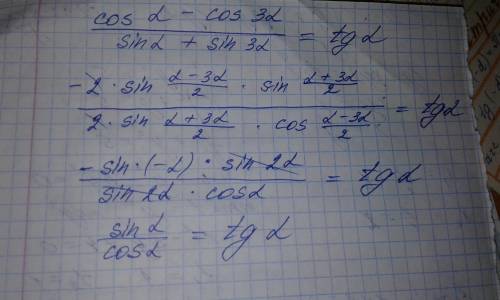 cos α - cos 3α / sin α + sin 3α = tg α
-2 · sin α-3α/2 · sin α+3α/2 / 2 · sin α+3α/2 · cos α-3α/2 = tg α
-sin · (-α) · sin 2α / sin 2α · cos α = tg α
sin α / cos α = tg α